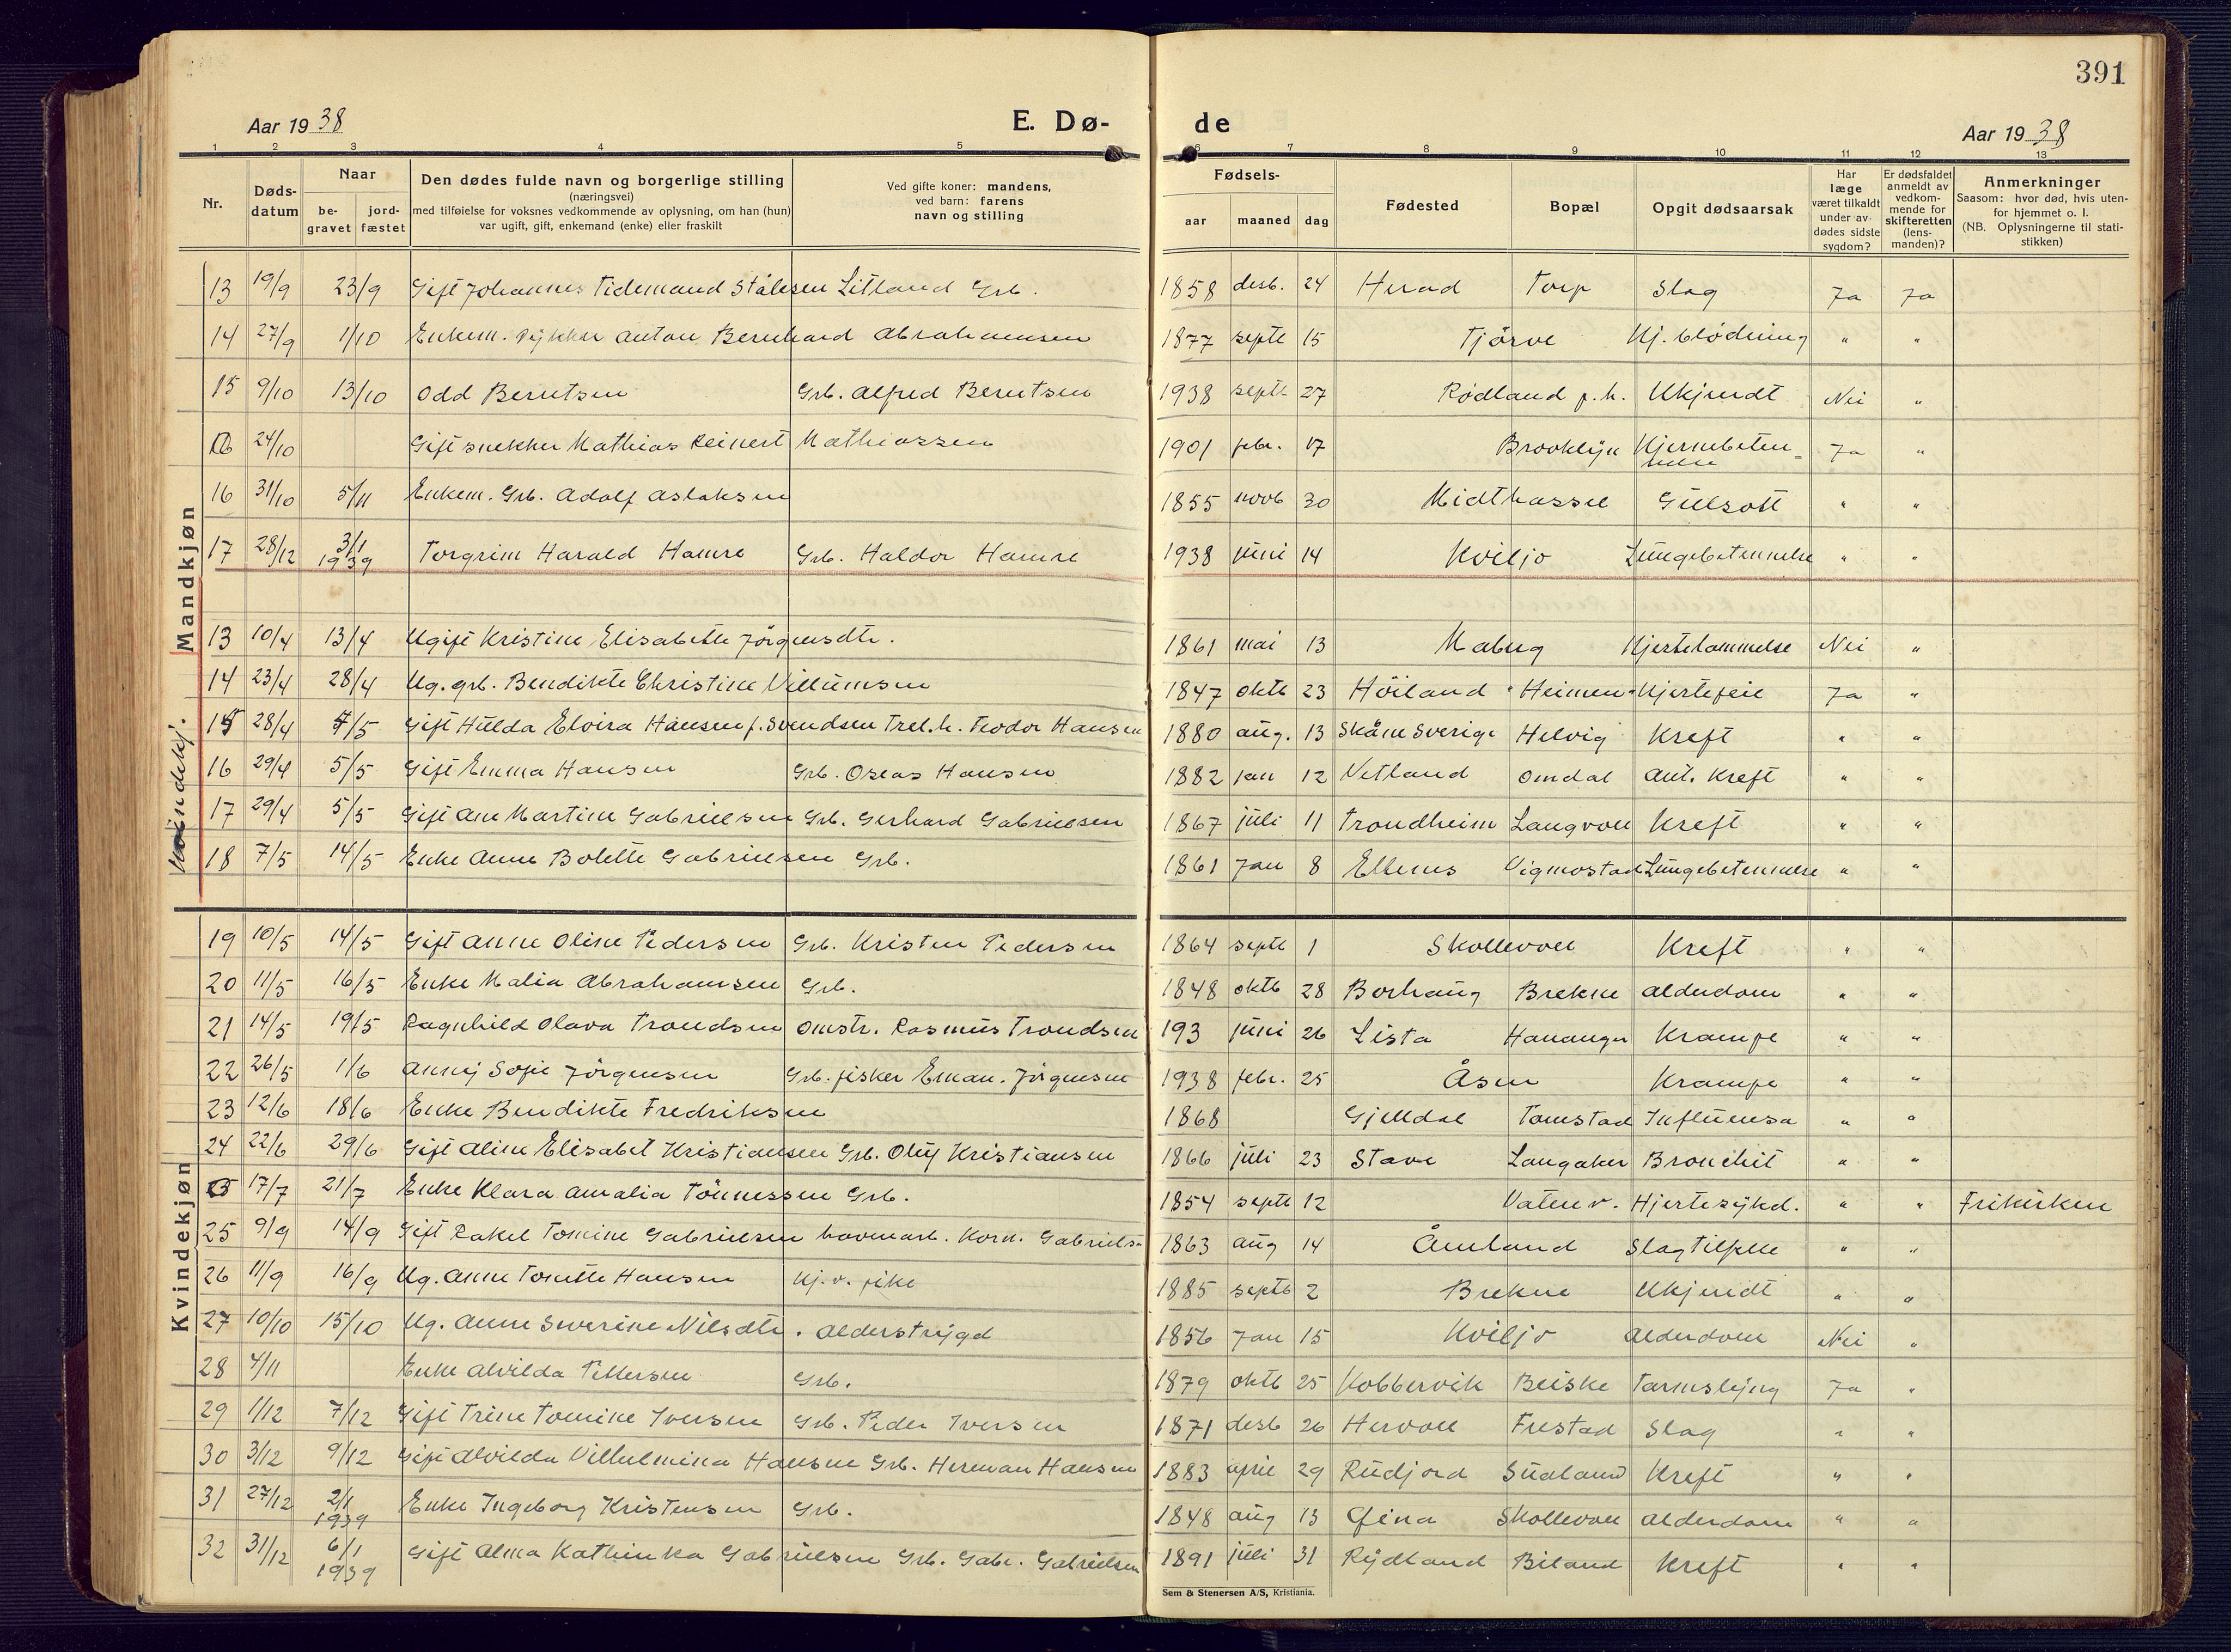 391
Aar 1938
E. Dø-
de
Aar 1938
1 2 3 4 5 6 7 8 9 10 11 12 13
Nr.
Døds-
datum
Naar
be-
gravet
jord-
fæstet
Den dødes fulde navn og borgerlige stilling
(næringsvei)
med tilføielse for voksnes vedkommende av oplysning, om han (hun)
var ugift, gift, enkemand (enke) eller fraskilt
Ved gifte koner: mandens,
ved barn: farens
navn og stilling
Fødsels-
aar maaned dag
Fødested
Bopæl
Opgit dødsaarsak
Har
læge
været tilkaldt
under av-
dødes sidste
sygdom?
Er dødsfaldet
anmeldt av
vedkom-
mende for
skifteretten
(lens-
manden)?
Anmerkninger
Saasom: hvor død, hvis uten-
for hjemmet o. l.
(NB. Oplysningerne til stati-
stikken)
Mandkjøn
13 19/9 23/9 Gift Johannes Tidemand Stålesen Litland Grb. 1858 desb. 24 Herad Torp Slag Ja Ja
14 27/9 1/10 Enkem. Anton Bernhard Abrahamsen 1877 septb 15 Tjörve Hj. blödning " "
15 9/10 13/10 Odd Berntsen Grb. Alfred Berntsen 1938 septb 27 Rødland p.h. Ukjendt Nei "
24/10 Gift snekker Mathias Reinert Mathiassen 1901 febr. 17 Brooklyn Hjernebeten=
nelse Ja "
16 31/10 5/11 Enkem. Grb. Adolf Aslaksen 1855 novb 30 Midthassel Gulsott " "
17 28/12 3/1
1939 Torgrim Harald Hamre Grb. Haldor Hamre 1938 juni 14 Kviljo Lungebetennelse " "
Kvindekj.
13 10/4 13/4 Ugift Kristine Elisabethe Jörgensdtr. 1861 mai 13 Maberg Hjertelammelse Nei "
14 23/4 28/4 Ug. grb. Bendikte Christine Villumsen 1847 oktb 23 Höiland "Heimen" Hjertefeil Ja "
15 28/4 7/5 Gift Hulda Elvira Hansen f. Svendsen Trel.h. Teodor Hansen 1880 aug. 13 Skåne Sverige Helvig Kreft " "
16 29/4 5/5 Gift Emma Hansen Grb. Oseas Hansen 1882 jan 12 Vetland Omdal Ant. Kreft " "
17 29/4 5/5 Gift Ane Martine Gabrielsen Grb. Gerhard Gabrielsen 1867 juli 11 Trondheim Langvoll Kreft " "
18 7/5 14/5 Enke Anne Bolette Gabrielsen Grb. 1861 Jan 8 Ellenes Vigmostad Lungebetennelse " "
Kvindekjøn
19 10/5 14/5 Gift Anne Oline Pedersen Grb. Kristen Pedersen 1864 septb 1 Skollevoll Kreft " "
20 11/5 16/5 Enke Malia Abrahamsen Grb. 1848 oktb 28 Borhaug Brekne Alderdom " "
21 14/5 19/5 Ragnhild Olava Trondsen Omstr. Rasmus Trondsen 193 juni 26 Lista Hananger Krampe " "
22 26/5 1/6 Anny Sofie Jörgensen Grb. fisker Eman. Jörgensen 1938 febr. 25 Åsen Krampe " "
23 12/6 18/6 Enke Bendikte Fredriksen 1868 Gjelldal Tomstad Influensa " "
24 22/6 29/6 Gift Aline Elisabet Kristiansen Grb. Oluf Kristiansen 1866 juli 23 Stave Langaker Bronchit " "
17/7 21/7 Enke Klara Amalia Tönnessen Grb. 1854 septb 12 Vatne v. Hjertesykd. " " Frikirken
25 9/9 14/9 Gift Rakel Tomine Gabrielsen Korn. Gabriels. 1863 aug 14 Åmland Slagtilfelle " "
26 11/9 16/9 Ug. Anne Tonette Hansen Hj.v. pike 1885 septb 2 Brekne Ukjendt " "
27 10/10 15/10 Ug. Anne Severine Nilsdtr. Alderstrygd 1856 Jan 15 Kviljo Alderdom Nei "
28 4/11 Enke Alvilda Pettersen Grb. 1879 oktb 25 Kobbervik Beiske Tarmslyng Ja "
29 1/12 7/12 Gift Trine Tomine Iversen Grb. Peder Iversen 1871 desb 26 Hervoll Frestad Slag " "
30 3/12 9/12 Gift Alvilda Vilhelmina Hansen Grb. Herman Hansen 1883 april 29 Rudjord Sudland Kreft " "
31 27/12 2/1
1939 Enke Ingeborg Kristensen Grb. 1848 aug 13 Skollevoll Alderdom " "
32 31/12 6/1
1939 Gift Alma Kathinka Gabrielsen Grb. Gabr. Gabrielsen 1891 juli 31 Rydland Biland Kreft " "
Sem & Stenersen A/S, Kristiania.